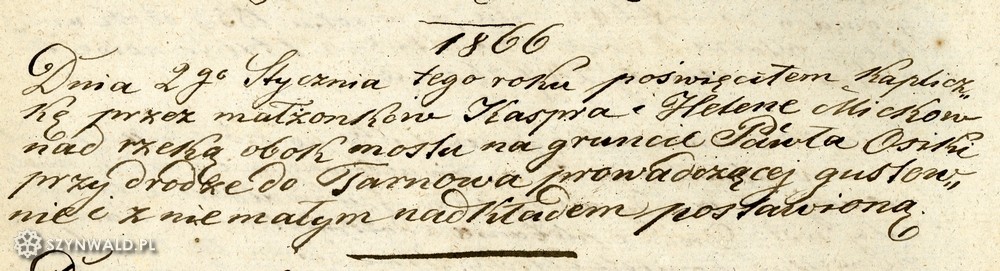 1866
Dnia 2go Stycznia tego roku poświęciłem kaplicz„
kę przez małżonków Kaspra i Helenę Mickow
nad rzeką obok mostu na gruncie Pawła Osiki
przy drodze do Tarnowa prowadzącej gustow„
nie i z nie małym nadkładem postawioną.
SZYNWALD.PL